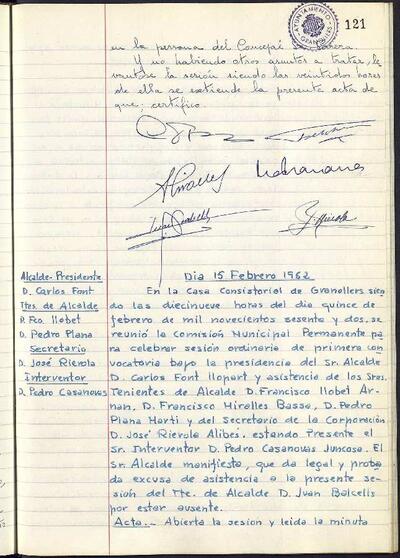 AYUNTAMIENTO
GRANOLLERS
121
en la persona del Concejal
Y no habiendo otros asuntos a tratar, le
vantose la sesión siendo las veintidos horas
de ella se extiende la presente acta de
que; certifico.
Alcalde-Presidente
D. Carlos Font
Ttes. de Alcalde
D. Fco. llobet
D. Pedro Plana
Secretario
D. José Rierola
Interventor
D. Pedro Casanovas
Dia 15 Febrero 1962
En la Casa Consistorial de Granollers sien
do las diecinueve horas del dia quince de
febrero de mil novecientos sesenta y dos, se
reunió la Comisión Municipal Permanente pa
ra celebrar sesión ordinaria de primera con
vocatoria bajo la presidencia del Sr. Alcalde
D. Carlos Font llopart y asistencia de los Sres.
Tenientes de Alcalde D. Francisco llobet Ar-
nan, D. Francisco Miralles Bassa, D. Pedro
Plana Marti y del Secretario de la Corporación
D. José Rierola Alibes, estando Presente el
Sr. Interventor D. Pedro Casanovas Juncosa. El
Sr. Alcalde manifiesta, que da legal y proba
da excusa de asistencia a la presente se-
sión del Tte. de Alcalde D. Juan Balcells
por estar ausente.
Acta.- Abierta la sesion y leida la minuta